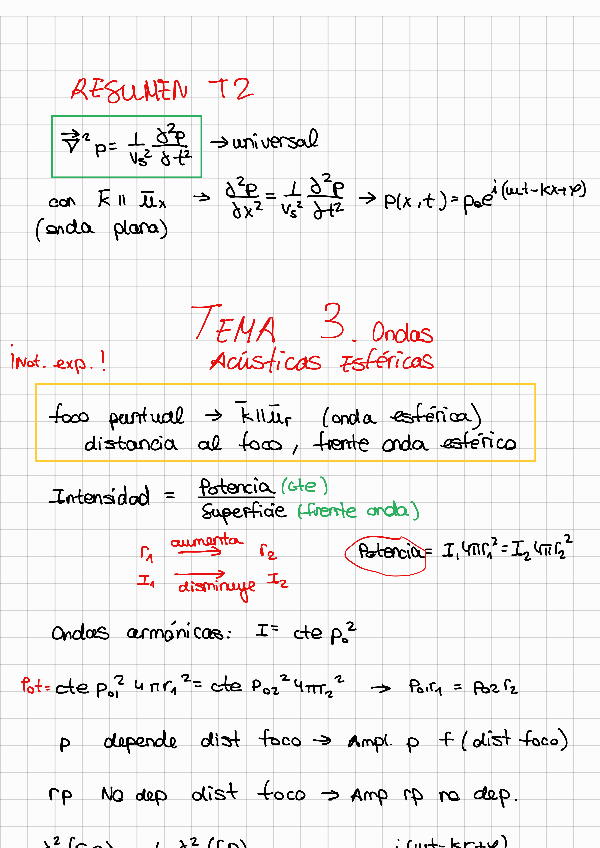 RESUMEN T2
∇⃗² p = 1/Vs² ∂²p/∂t² → universal
con k̄ ∥ ūx → ∂²p/∂x² = 1/Vs² ∂²p/∂t² → p(x,t) = p₀e^i(ωt-kx+φ)
(onda plana)
TEMA 3. Ondas
¡Not. exp.! Acústicas Esféricas
foco puntual → k̄ ∥ ūr (onda esférica)
distancia al foco, frente onda esférico
Intensidad = Potencia (cte) / Superficie (frente onda)
r₁ aumenta → r₂ Potencia = I₁4πr₁² = I₂4πr₂²
I₁ → disminuye I₂
Ondas armónicas: I = cte p₀²
Pot = cte p₀₁² 4πr₁² = cte p₀₂² 4πr₂² → p₀₁r₁ = p₀₂r₂
p depende dist foco → Ampl. p f(dist foco)
rp No dep dist foco → Amp rp no dep.